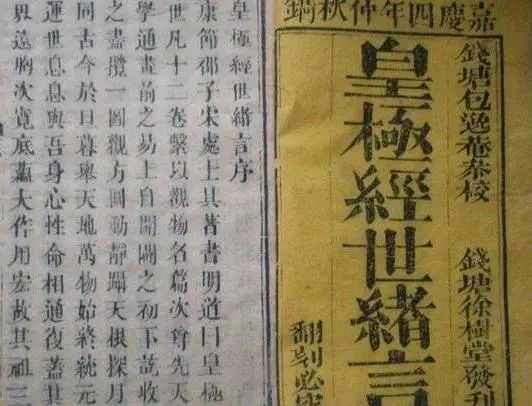 嘉慶四年仲秋鐫
錢塘包逸菴恭校
錢塘徐樹堂發刊
皇極經世緒言
翻刻必
皇極經世緒言序
康節邵子宋處士其著書明道曰皇極
世凡十二卷繫以觀物名篇次尊先天
學通畫前之易上自開闢之初下訖收
之盡攬一圖觀方圓動靜躡天根探月
同古今於日暮與天地萬物始終統元
運世息息與吾身心性命相通復蓋其
界遠胸次寬底蘊大作用宏故其祖三